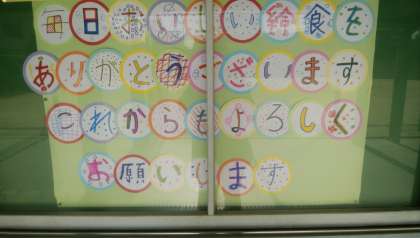 毎日おいしい給食を
ありがとうございます
これからもよろしく
お願いします